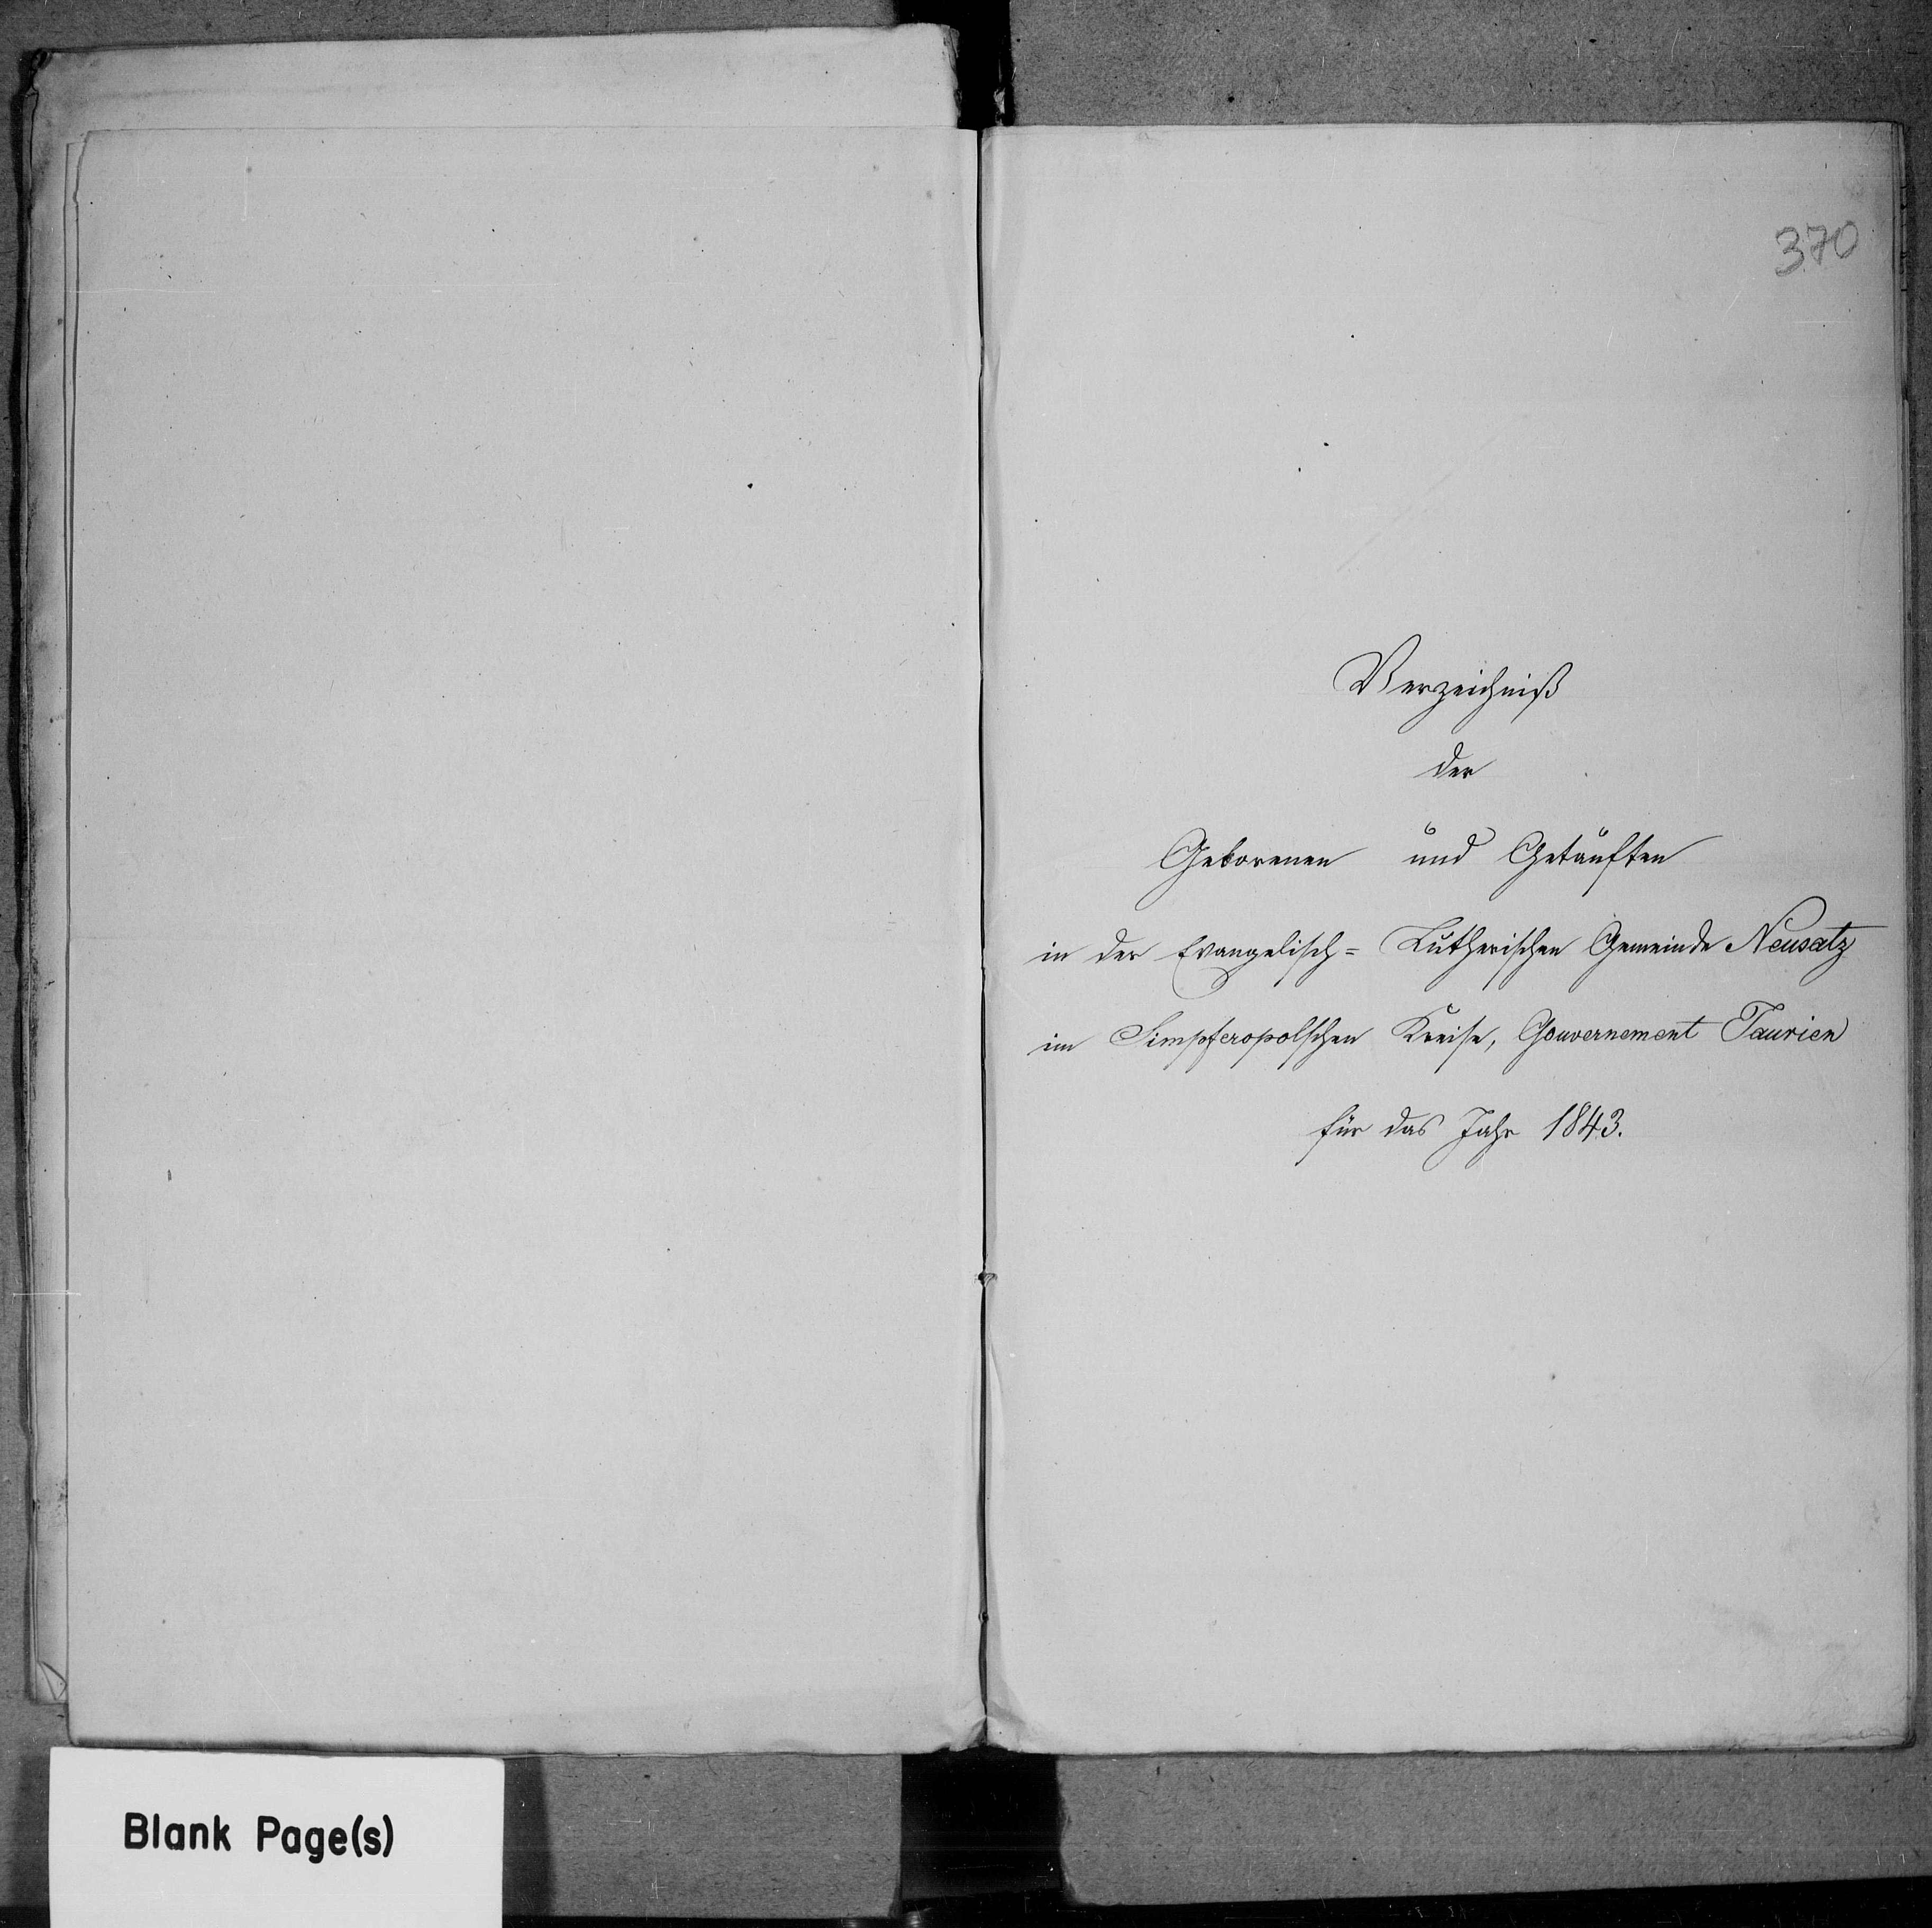 370
Verzeichniß
der
Geborenen und Getauften
in der Evangelisch= Lutherischen Gemeinde Neusatz
im Simpferopolschen Kreise, Gouvernement Taurien
für das Jahr 1843.
Blank Page(s)